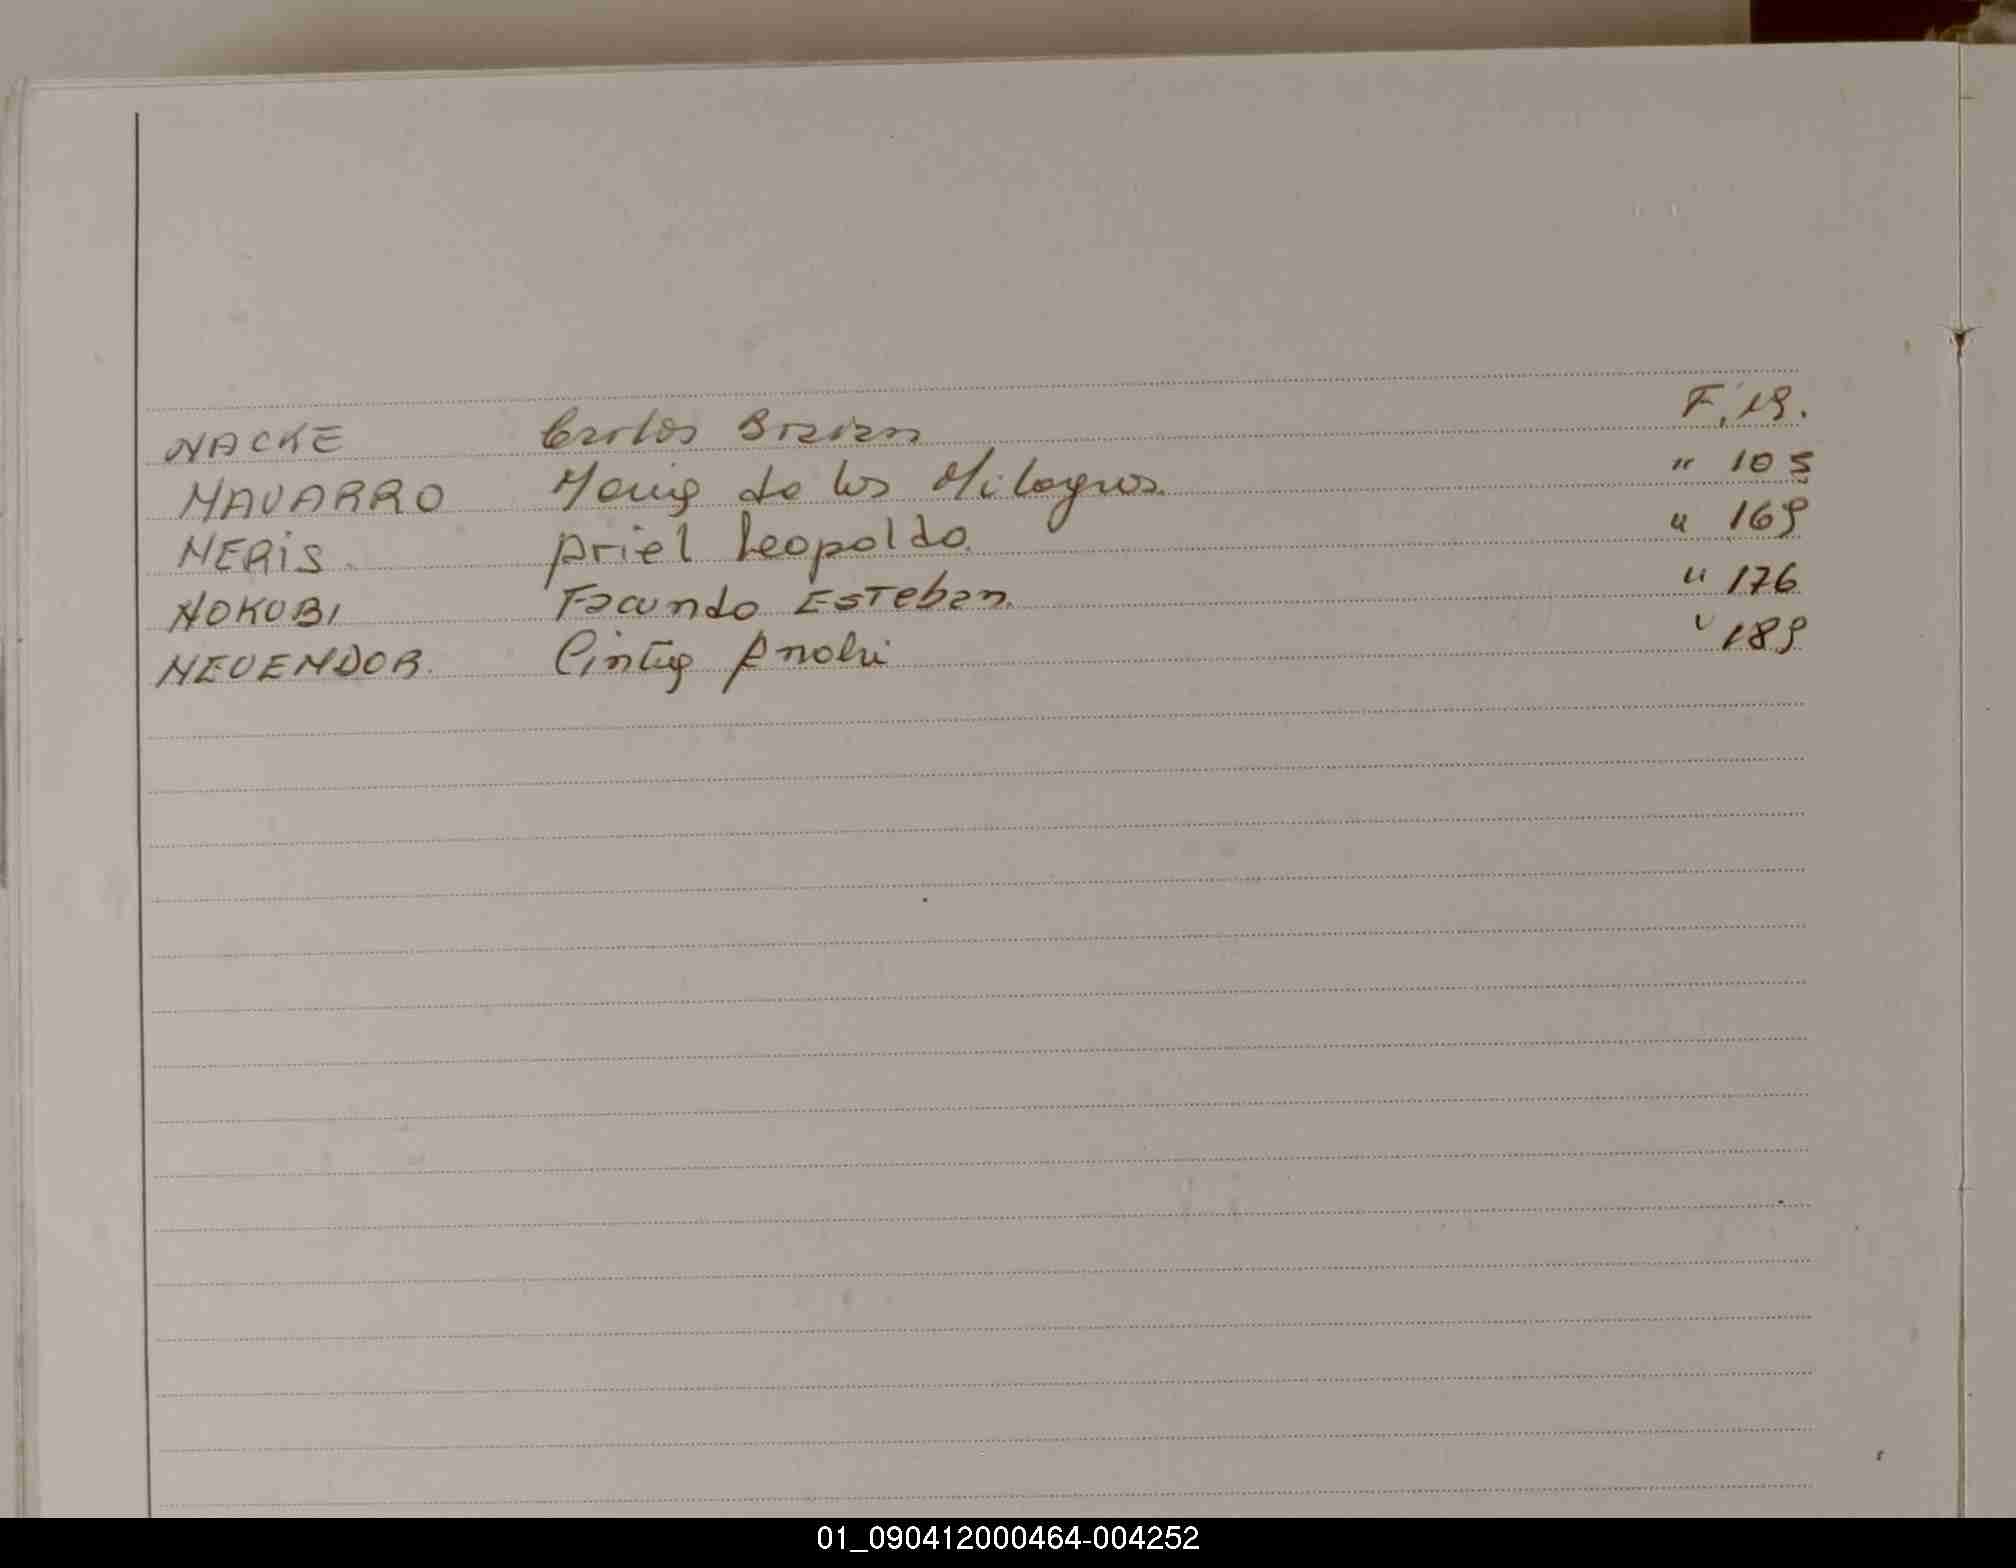 NACKE Carlos Brian F. 19.
NAVARRO Maria de los Milagros. " 105
NERIS. Ariel Leopoldo. " 169
NOKUBI Facundo Esteban. " 176
NEUENDOR. Cintia Anahi " 189
01_090412000464-004252